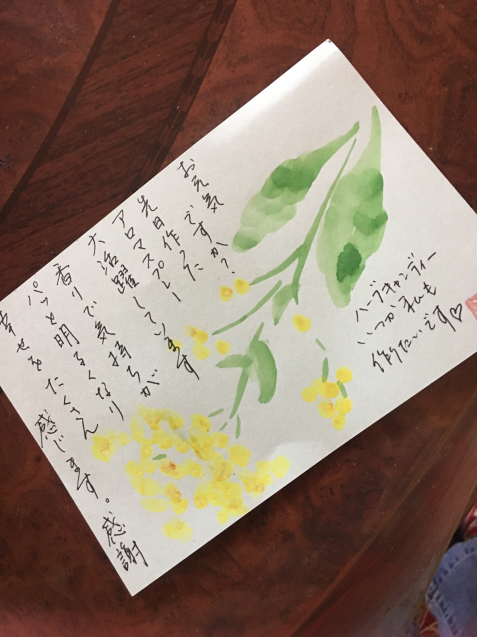 お元気ですか?
先日作った
アロマスプレー
大活躍しています
香りで気持ちが
パッと明るくなり
幸せをたくさん
感じます。感謝
ハーブキャンディー
いつか私も
作りたいです♡